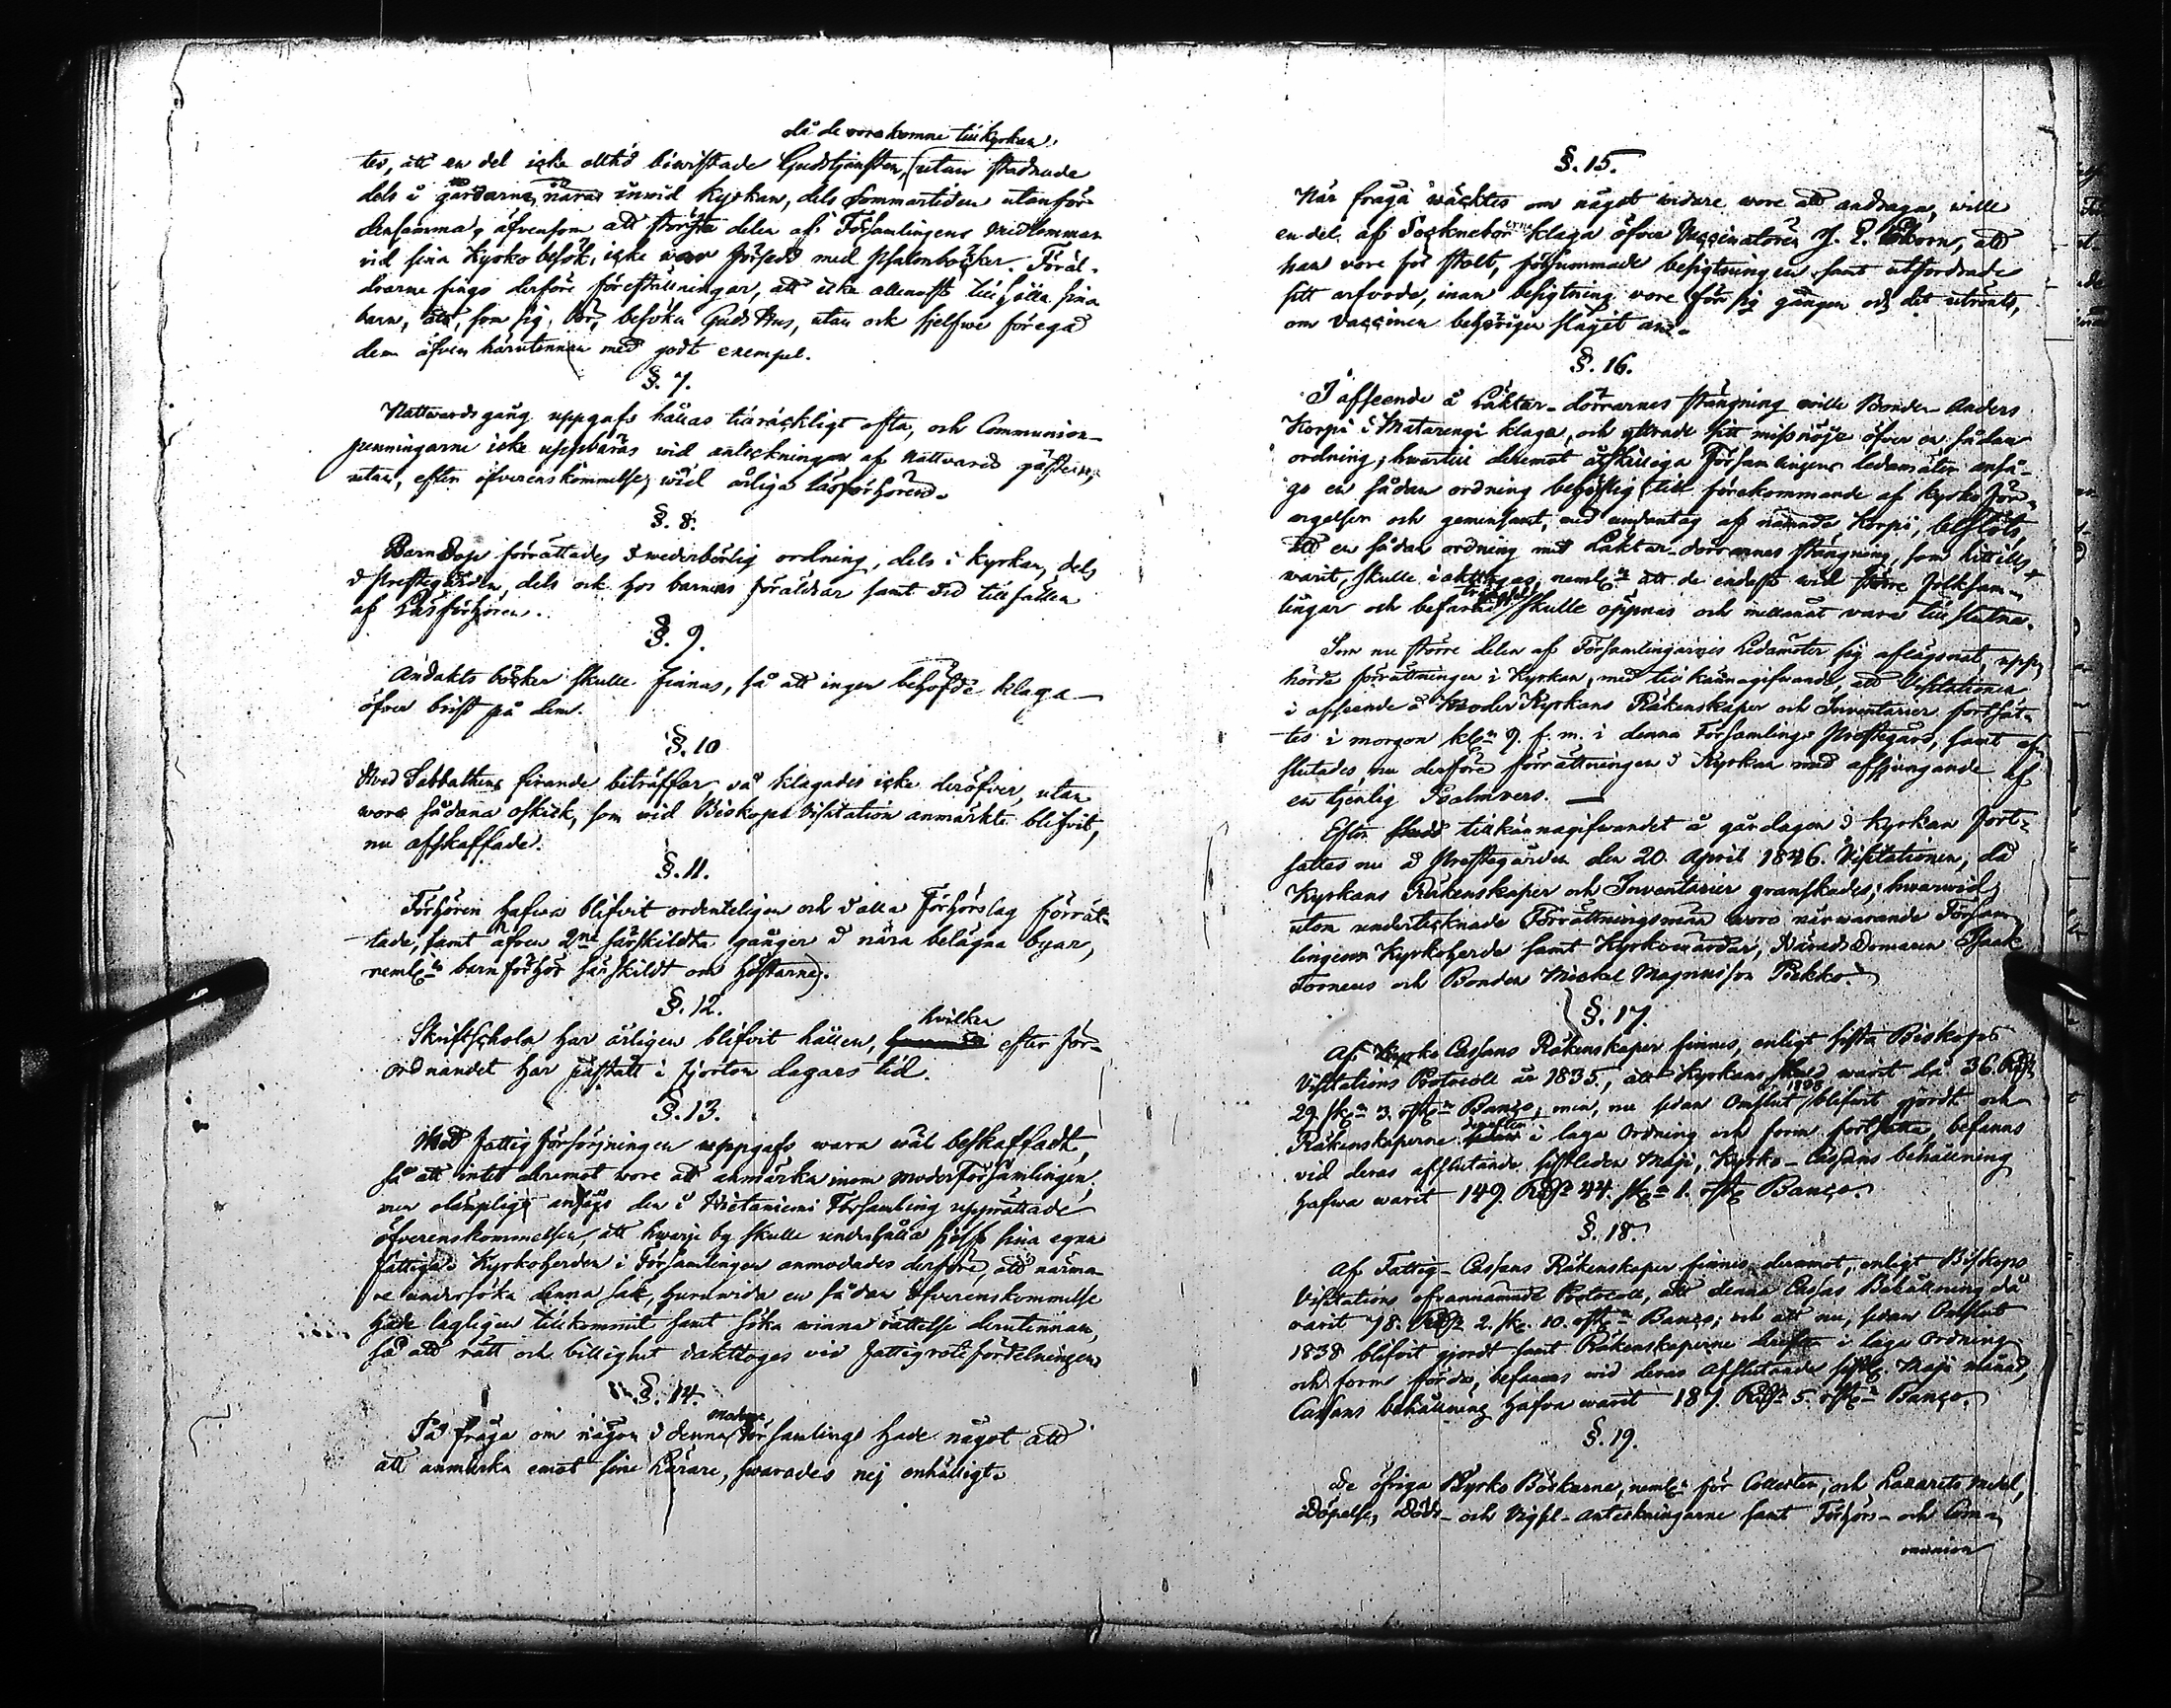 då de voro komne till Kyrkan,
tes, att en del icke alltid biwistade Gudstjensten, utan stadnade
dels i gårdarna, nära inwid Kyrkan, dels Sommartiden utanför
densamma, äfvensom att största delen af Församlingens medlemmar
vid sina Kyrkobesök, icke war försedd med psalmböcker. Föräl-
drarne fingo derföre föreställningar, att icke allenast tillhålla sina
barn, att, som sig bör, besöka Guds Hus, utan ock sjelfwe föregå
dem äfven härutinnan med godt exempel.
§. 7.
Nattwardsgång uppgafs hållas tillräckligt ofta, och Communion-
penningarne icke uppbäras wid anteckningen af Nattvards gästerne,
utan, efter öfverenskommelse, wid årliga Läsförhören.
§. 8.
Barndop förrättades i wederbörlig ordning, dels i Kyrkan, dels
i Prestgården, dels ock hos barnens föräldrar samt vid tillfällen
af Läsförhören.
§. 9.
Andaktsböcker skulle finnas, så att ingen behöfde klaga
öfver brist på dem.
§. 10
Hvad Sabbathens firande beträffar, så klagades icke deröfver, utan
woro sådana oskick, som wid Biskops Visitation anmärkte blifvit,
nu afskaffade.
§. 11.
Förhören hafwa blifvit ordenteligen och i alla Förhörslag förrät-
tade, samt äfven 2ne särskildta gånger i nära belägna byar,
neml:n barnförhör särskildt om höstarne.
§. 12.
hvilken
Skriftschola har årligen blifvit hållen, efter för-
ordnandet har påstått i fjorton dagars tid.
§. 13.
Med Fattigförsörjningen uppgafs wara wäl beskaffadt,
så att intet deremot wore att anmärka inom Moderförsamlingen,
men olämplig ansågs den i Hietaniemi Församling upprättade
öfverenskommelsen, att hwarje by skulle underhålla sjelf sina egna
fattiga. Kyrkoherden i Församlingen anmodades derföre, att närma-
re undersöka denna sak, huruwida en sådan öfverenskommelse
hade lagligen tillkommit samt söka winna rättelse derutinnan,
så att rätt och billighet iakttoges vid fattigrotefördelningen
§. 14.
Moder
På fråga om någon i denna Församling hade något att
att anmärka emot sine Lärare, swarades nej enhälligt.
§. 15.
När fråga wäcktes om något widare wore att andraga, wille
en del af Socknebor klaga öfver Vaccinatoren J. E. att
han vore för stolt, försummade besigtningen samt utfordrade
sitt arfvode, innan besigtning vore för sig gången och det utrönts,
om vaccinen behörigen slagit an.
§. 16.
I afseende å Läktar-dörrarnes stängning wille Bonden Anders
Korpi i Matarengi klaga, och yttrade sitt missnöje öfver en sådan
ordning; hwartill deremot åtskilliga Församlingens ledamöter anså-
go en sådan ordning behöflig till förekommande af kyrkoför-
argelser och gemensamt, med undantag af nämnde Korpi, beslöts,
att en sådan ordning med Läktar-dörrarnes stängning, som hittills
warit, skulle iakttagas, neml:n att de endast wid större folksam-
lingar och befarad skulle öppnas och mellanåt vara tillslutna.
Som nu större delen af Församlingens Ledamöter sig aflägsnat, upp-
hörde förrättningen i Kyrkan, med tillkännagifwande, att Visitationen
i afseende å Moder Kyrkans Räkenskaper och Inventarier fortsät-
tes i morgon kl:n 9. f. m. i denna Församlings Prestegård, samt af-
slutades nu derföre förrättningen i Kyrkan med afsjungande af
en tjenlig Psalmvers.
Efter tillkännagifwandet å gårdagen i Kyrkan fort-
sattes nu å Prestegården den 20. April 1846. Visitationen, då
Kyrkans Räkenskaper och Inventarier granskades; hwarwid
utom undertecknade Förrättningsmän woro närwarande Försam-
lingens Kyrkoherde samt Kyrkowärdar, Härads Domaren Isaak
Torneus och Bonden Mickel Magnusson Pekko.
§. 17.
Af Kyrko Cassans Räkenskaper finnes, enligt sista Biskops
Visitations Protocoll år 1835, att Kyrkans skuld warit då 36. Rdr
29. sk:n 3. rst:n Banco; men, nu sedan Omslut 1838 blifvit gjordt och
Räkenskaperne derefter i laga Ordning och form fortsatte, befanns
vid deras afslutande sistleden Maji, Kyrko-Cassans behållning
hafwa warit 149. Rdr 44. sk:n 1. rst: Banco.
§. 18.
Af Fattig-Cassans Räkenskaper finnes deremot, enligt Biskops
Visitations ofvannämnde Protocoll, att denna Cassas Behållning då
warit 78. Rdr 2. sk. 10. rst:n Banco; och att nu, sedan Omslut
1838 blifvit gjordt samt Räkenskaperne derefter i laga Ordning
och form förda, befanns wid deras Afslutande sistl: Maji månad,
Cassans behållning hafva warit 187. Rdr 5. rst:n Banco.
§. 19.
De öfriga Kyrko Böckerne, neml:n för Collecter, och Lazaretts medel,
Döpelse, Död- och Vigsel-anteckningarne samt Förhörs- och Com-
munion